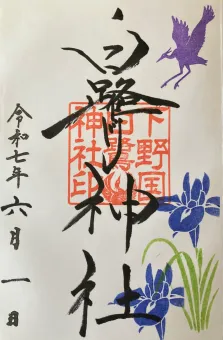 白鷺神社
下野国
白鷺山
神社印
令和七年 六月 一日